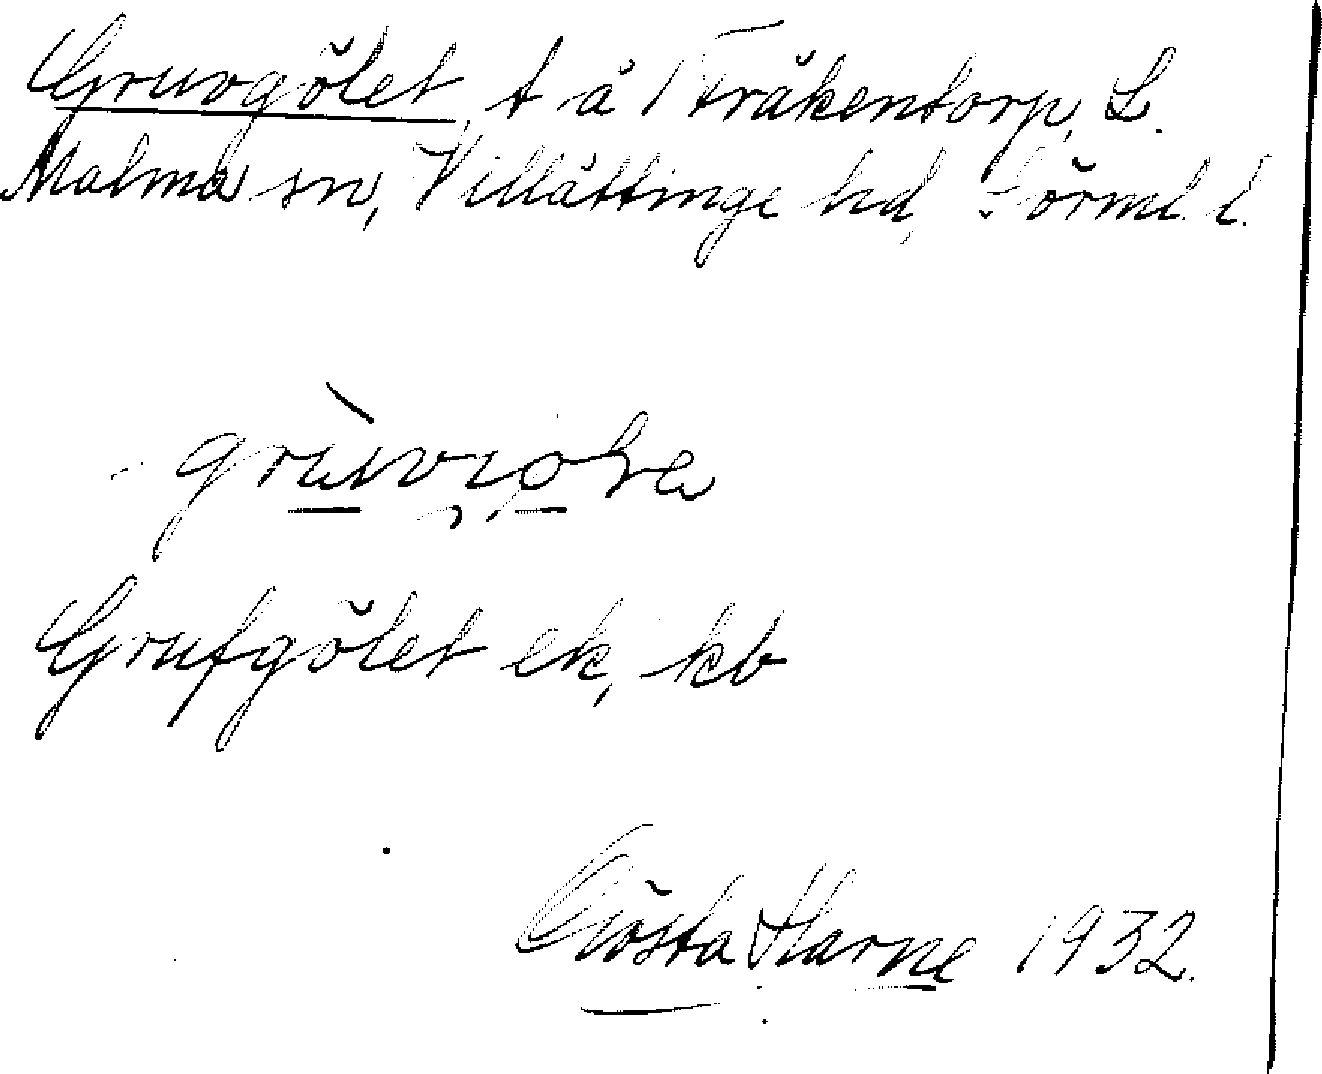 Gruvgölet, t å Fräkentorp, L.
Malma sn, Villåttinge hd, Sörml. l.
Grufgölet ek, kb
Gösta Harne 1932.